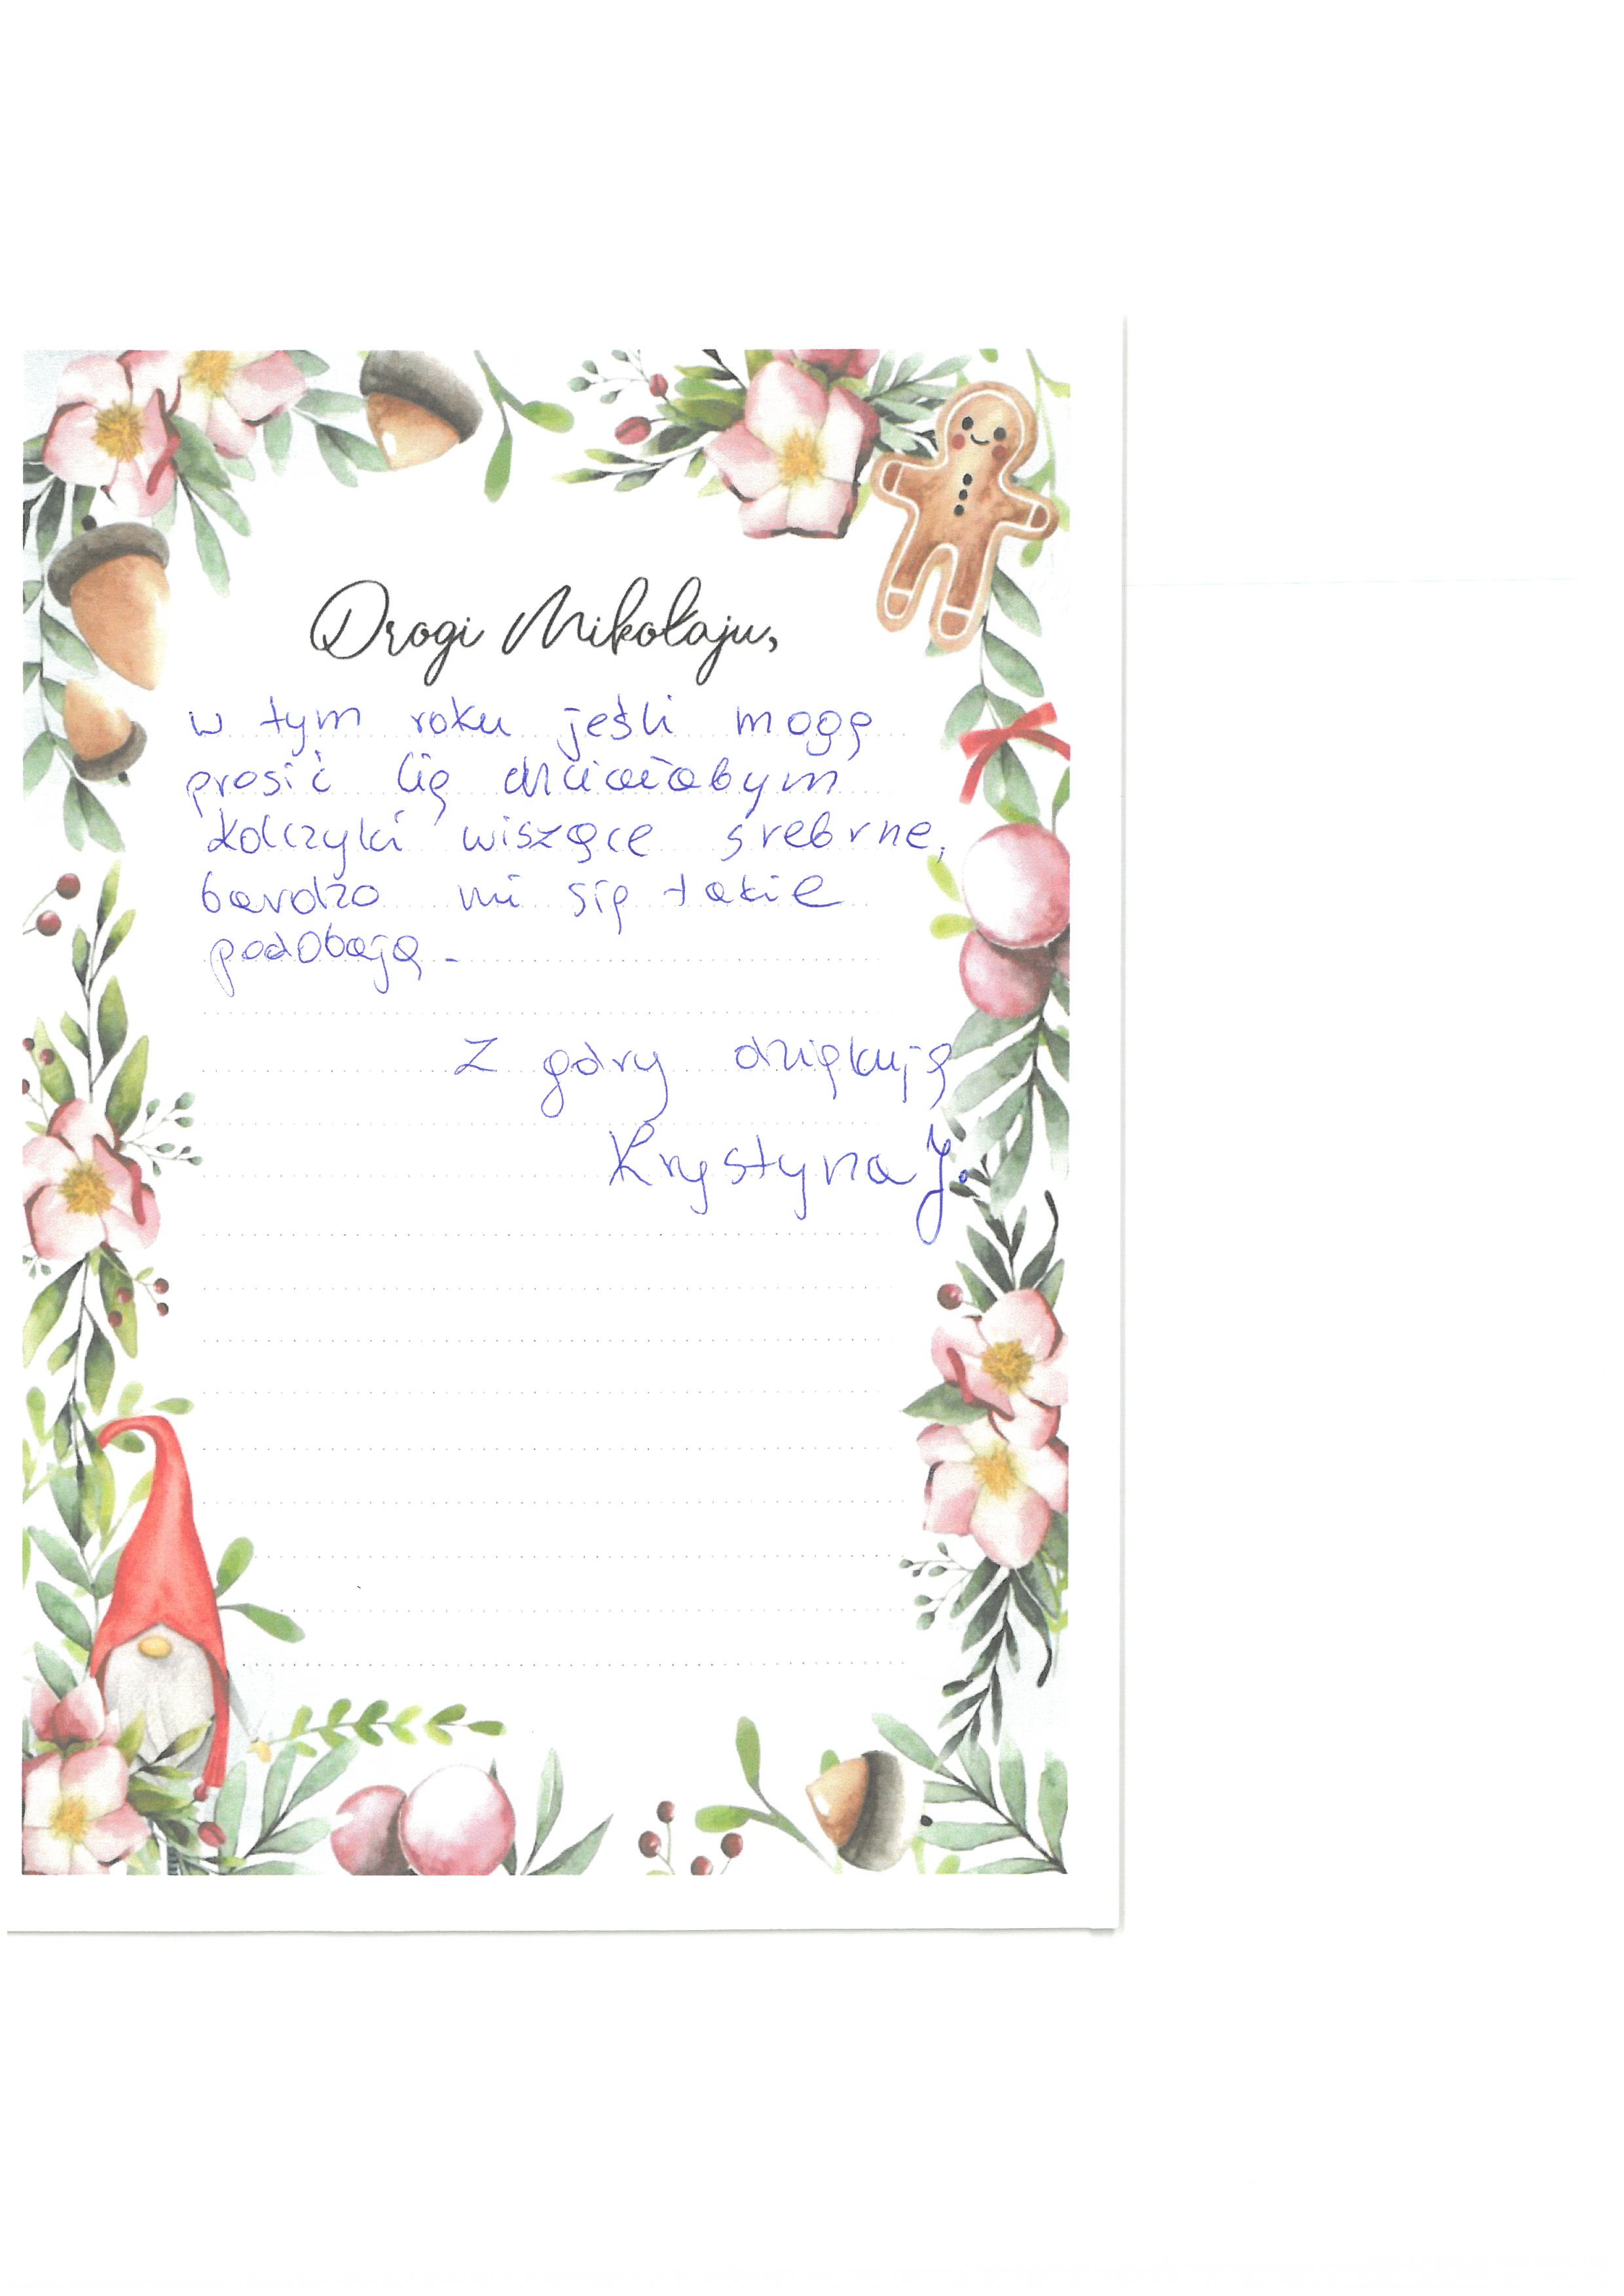 Drogi Mikołaju,
w tym roku jeśli mogę
prosić Cię chciałabym
kolczyki wiszące srebrne,
bardzo mi się takie
podobają.
Z góry dziękuję
Krystyna J.